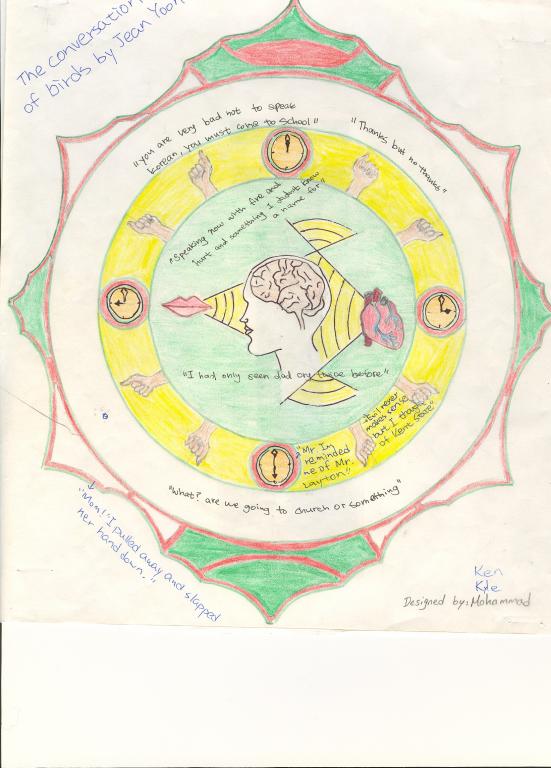 The conversation
of birds by Jean Yoon
"you are very bad not to speak
korean, you must come to school"
"Thanks but no thanks"
"Speaking now with fire and
hurt and something I didnot know
a name for"
"I had only seen dad cry twice before"
"Evil never
makes sense
but I thought
of Kent State"
"Mr. Im
reminded
me of Mr.
Layton"
"What? are we going to church or something"
"Mom!" I pulled away and slapped
her hand down."
Ken
Kyle
Designed by: Mohammad